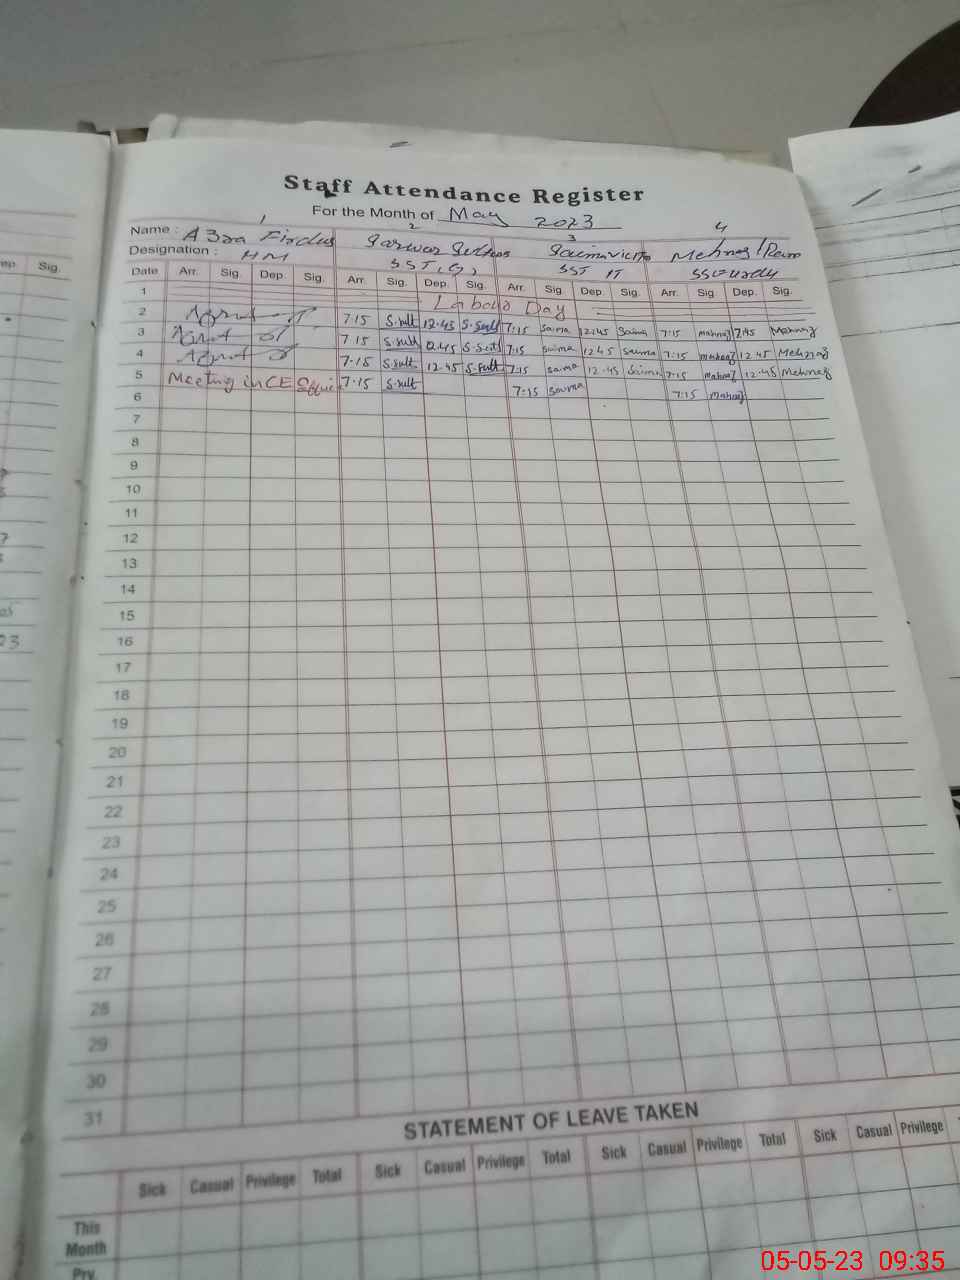 Staff Attendance Register
For the Month of May 2023
1 2 3 4
Name : A3ra Firdus
Designation : HM SST (G) SST IT SSC urdu
Date Arr. Sig. Dep. Sig. Arr. Sig. Dep. Sig. Arr. Sig. Dep. Sig. Arr. Sig Dep. Sig.
1 Labour Day
2 7:15 S.sult 12:45 S.Sult 7:15 Saima 12:45 Saima 7:15 mahnaj 7:45 Mehnaz
3 7:15 S.sult S.Sult 7:15 saima 12 45 Sauma 7:15 mahnaj 12 45 Mehnaz
4 7:15 S.sult 12.45 S.Sult 7:15 saima 12.45 Saima 7:15 mahnaj 12.45 Mehnaz
5 Meeting in CE Office 7.15 S.sult 7:15 Saima 7:15 Mahnaj
6
7
8
9
10
11
12
13
14
15
16
17
18
19
20
21
22
23
24
25
26
27
28
29
30
31
STATEMENT OF LEAVE TAKEN
Sick Casual Privilege Total Sick Casual Privilege Total Sick Casual Privilege Total Sick Casual Privilege
This
Month
Prv.
05-05-23 09:35